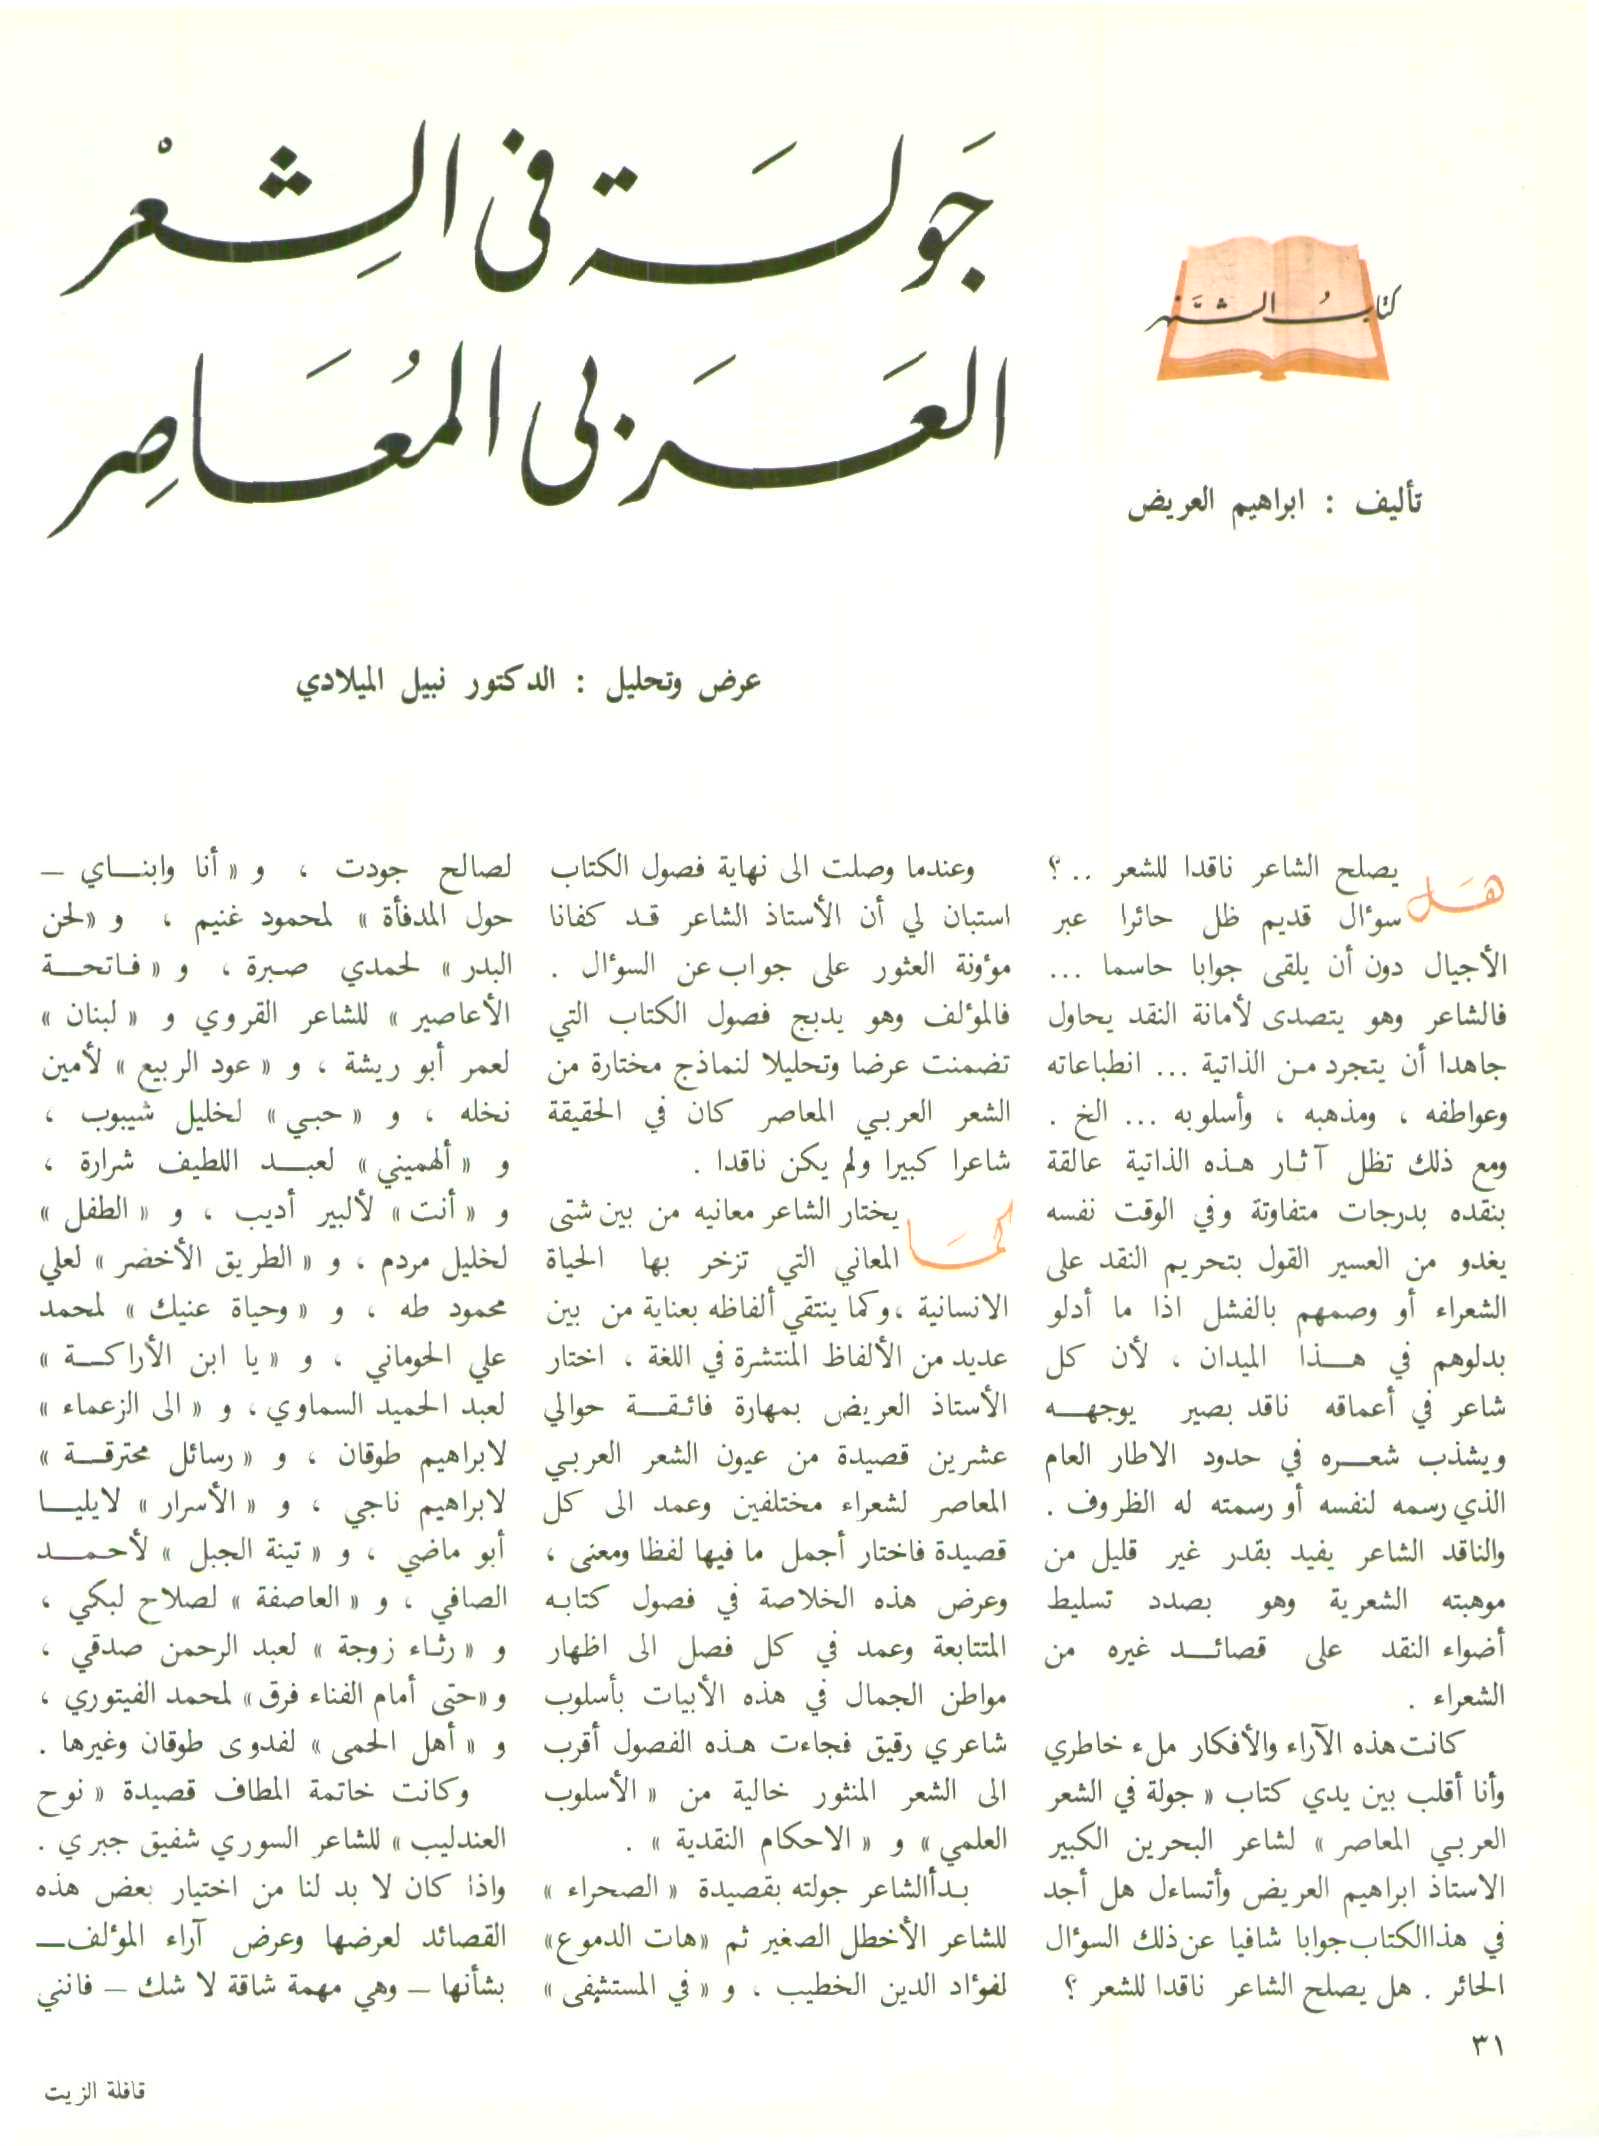 جَولَة في الشِعْر
العَربي المُعَاصِر
كتابُ الشَّهر
تأليف : ابراهيم العريض
عرض وتحليل : الدكتور نبيل الميلادي
هَل يصلح الشاعر ناقدا للشعر .. ؟
سؤال قديم ظل حائرا عبر
الأجيال دون أن يلقى جوابا حاسما ...
فالشاعر وهو يتصدى لأمانة النقد يحاول
جاهدا أن يتجرد من الذاتية ... انطباعاته
وعواطفه ، ومذهبه ، وأسلوبه ... الخ .
ومع ذلك تظل آثار هذه الذاتية عالقة
بنقده بدرجات متفاوتة وفي الوقت نفسه
يغدو من العسير القول بتحريم النقد على
الشعراء أو وصمهم بالفشل اذا ما أدلو
بدلوهم في هذا الميدان ، لأن كل
شاعر في أعماقه ناقد بصير يوجهه
ويشذب شعره في حدود الاطار العام
الذي رسمه لنفسه أو رسمته له الظروف .
والناقد الشاعر يفيد بقدر غير قليل من
موهبته الشعرية وهو بصدد تسليط
أضواء النقد على قصائد غيره من
الشعراء .
كانت هذه الآراء والأفكار ملء خاطري
وأنا أقلب بين يدي كتاب « جولة في الشعر
العربي المعاصر » لشاعر البحرين الكبير
الاستاذ ابراهيم العريض وأتساءل هل أجد
في هذا الكتاب جوابا شافيا عن ذلك السؤال
الحائر . هل يصلح الشاعر ناقدا للشعر ؟
وعندما وصلت الى نهاية فصول الكتاب
استبان لي أن الأستاذ الشاعر قد كفانا
مؤونة العثور على جواب عن السؤال .
فالمؤلف وهو يدبج فصول الكتاب التي
تضمنت عرضا وتحليلا لنماذج مختارة من
الشعر العربي المعاصر كان في الحقيقة
شاعرا كبيرا ولم يكن ناقدا .
كمَا يختار الشاعر معانيه من بين شتى
المعاني التي تزخر بها الحياة
الانسانية ، وكما ينتقي ألفاظه بعناية من بين
عديد من الألفاظ المنتشرة في اللغة ، اختار
الأستاذ العريض بمهارة فائقة حوالي
عشرين قصيدة من عيون الشعر العربي
المعاصر لشعراء مختلفين وعمد الى كل
قصيدة فاختار أجمل ما فيها لفظا ومعنى ،
وعرض هذه الخلاصة في فصول كتابه
المتتابعة وعمد في كل فصل الى اظهار
مواطن الجمال في هذه الأبيات بأسلوب
شاعري رقيق فجاءت هذه الفصول أقرب
الى الشعر المنثور خالية من « الأسلوب
العلمي » و « الاحكام النقدية » .
بدأ الشاعر جولته بقصيدة « الصحراء »
للشاعر الأخطل الصغير ثم «هات الدموع»
لفؤاد الدين الخطيب ، و « في المستشفى »
لصالح جودت ، و « أنا وابناي –
حول المدفأة » لمحمود غنيم ، و «لحن
البدر » لحمدي صبرة ، و « فاتحة
الأعاصير » للشاعر القروي و « لبنان »
لعمر أبو ريشة ، و « عود الربيع » لأمين
نخله ، و « حبي » لخليل شيبوب ،
و « ألهميني » لعبد اللطيف شرارة ،
و « أنت » لألبير أديب ، و « الطفل »
لخليل مردم ، و « الطريق الأخضر » لعلي
محمود طه ، و « وحياة عنيك » لمحمد
علي الحوماني ، و « يا ابن الأراكة »
لعبد الحميد السماوي ، و « الى الزعماء »
لابراهيم طوقان ، و « رسائل محترقة »
لابراهيم ناجي ، و « الأسرار » لايليا
أبو ماضي ، و « تينة الجبل » لأحمد
الصافي ، و « العاصفة » لصلاح لبكي ،
و « رثاء زوجة » لعبد الرحمن صدقي ،
و «حتى أمام الفناء فرق» لمحمد الفيتوري ،
و « أهل الحمى » لفدوى طوقان وغيرها .
وكانت خاتمة المطاف قصيدة « نوح
العندليب » للشاعر السوري شفيق جبري .
واذا كان لا بد لنا من اختيار بعض هذه
القصائد لعرضها وعرض آراء المؤلف –
بشأنها – وهي مهمة شاقة لا شك – فانني
٣١
قافلة الزيت